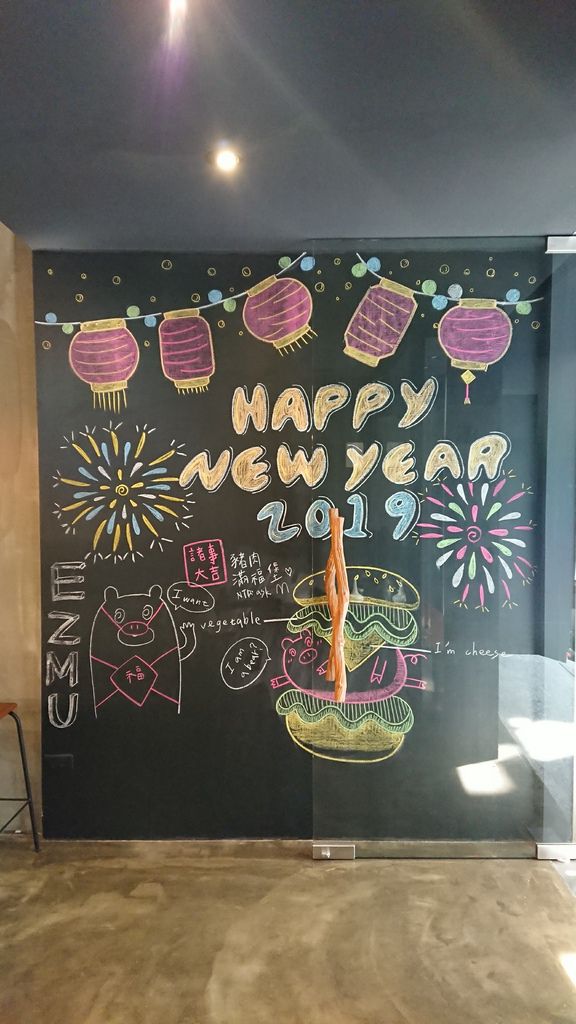 HAPPY
NEW YEAR
2019
諸事
大吉
豬肉
滿福堡
NT$ ask M
EZMU
I want
I'm vegetable
I am
a bear?
I'm cheese
福